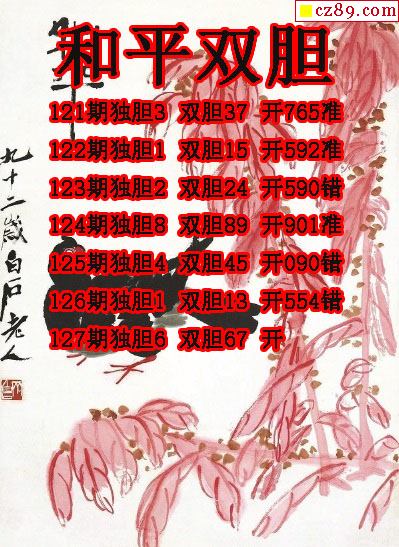 cz89.com
和平双胆
121期独胆3 双胆37 开765准
122期独胆1 双胆15 开592准
123期独胆2 双胆24 开590错
124期独胆8 双胆89 开901准
125期独胆4 双胆45 开090错
126期独胆1 双胆13 开554错
127期独胆6 双胆67 开
九十二岁白石老人